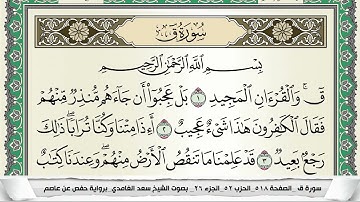 سُورَةُ ق
بِسْمِ اللَّهِ الرَّحْمَٰنِ الرَّحِيمِ
قٓ ۚ وَالْقُرْءَانِ الْمَجِيدِ ١ بَلْ عَجِبُوٓا۟ أَن جَآءَهُم مُّنذِرٌ مِّنْهُمْ
فَقَالَ الْكَٰفِرُونَ هَٰذَا شَىْءٌ عَجِيبٌ ٢ أَءِذَا مِتْنَا وَكُنَّا تُرَابًا ۖ ذَٰلِكَ
رَجْعٌۢ بَعِيدٌ ٣ قَدْ عَلِمْنَا مَا تَنقُصُ الْأَرْضُ مِنْهُمْ ۖ وَعِندَنَا كِتَٰبٌ
سورة ق _ الصفحة ٥١٨_ الحزب ٥٢ _ الجزء ٢٦ _ بصوت الشيخ سعد الغامدي _ برواية حفص عن عاصم